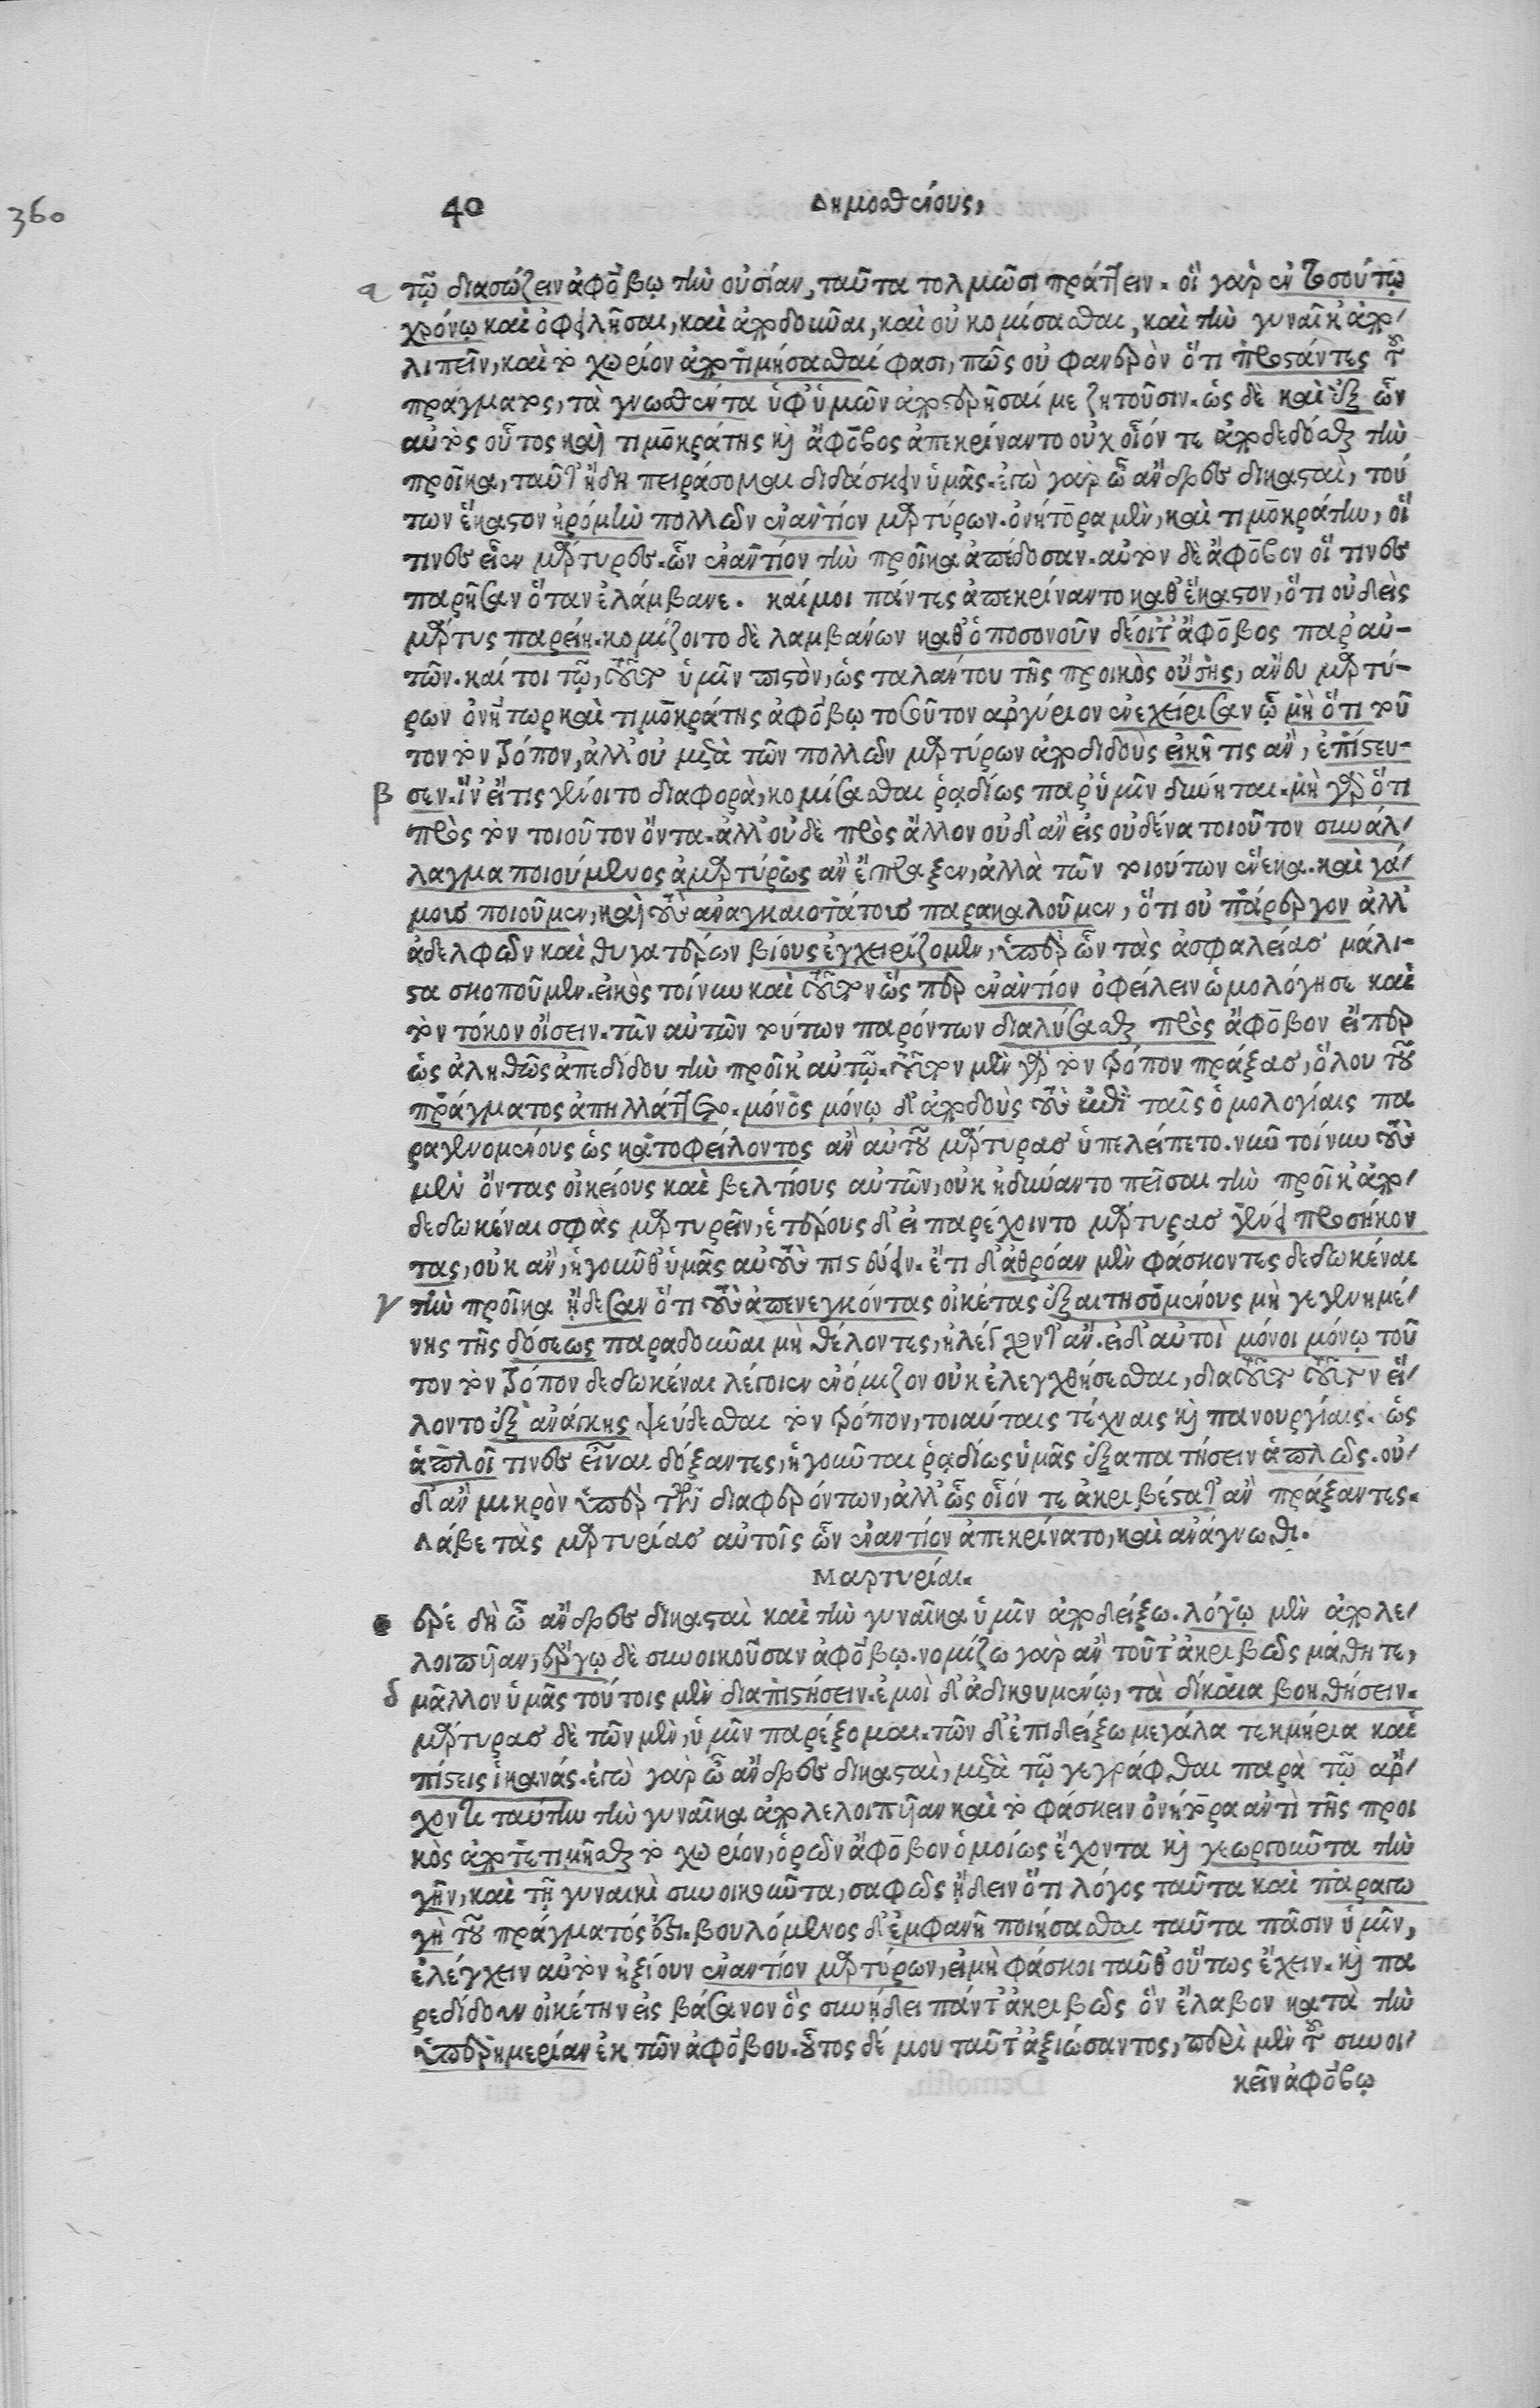 360
40 Δημοσθένους,
α τῷ διασώζειν ἀφόβῳ τὴν οὐσίαν, ταῦτα τολμῶσι πράττειν. οἳ γὰρ ἐν τοσούτῳ
χρόνῳ καὶ ὀφλῆσαι, καὶ ἀποδοῦναι, καὶ οὐ κομίσασθαι, καὶ τὴν γυναῖκ' ἀπο-
λιπεῖν, καὶ τὸ χωρίον ἀποτιμήσασθαί φασι, πῶς οὐ φανερὸν ὅτι προστάντες τοῦ
πράγματος, τὰ γνωσθέντα ὑφ' ὑμῶν ἀποστερῆσαί με ζητοῦσιν. ὡς δὲ καὶ ἐξ ὧν
αὐτὸς οὗτος καὶ τιμοκράτης καὶ ἄφοβος ἀπεκρίναντο οὐχ οἷόν τε ἀποδεδόσθαι τὴν
προῖκα, ταῦτ' ἤδη πειράσομαι διδάσκειν ὑμᾶς. ἐγὼ γὰρ ὦ ἄνδρες δικασταὶ, τού
των ἕκαστον ἠρόμην πολλῶν ἐναντίον μαρτύρων. ὀνήτορα μὲν, καὶ τιμοκράτην, οἵ
τινες εἶεν μάρτυρες. ὧν ἐναντίον τὴν προῖκα ἀπέδοσαν. αὐτὸν δὲ ἄφοβον οἵ τινες
παρῆσαν ὅταν ἐλάμβανε. καί μοι πάντες ἀπεκρίναντο καθ' ἕκαστον, ὅτι οὐδεὶς
μάρτυς παρείη. κομίζοιτο δὲ λαμβάνων καθ' ὁποσονοῦν δέοιτ' ἄφοβος παρ' αὐ-
τῶν. καί τοι τῷ, τοῦτο ὑμῖν πιστὸν, ὡς ταλάντου τῆς προικὸς οὔσης, ἄνευ μαρτύ-
ρων ὀνήτωρ καὶ τιμοκράτης ἀφόβῳ τοσοῦτον ἀργύριον ἐνεχείρισαν ᾧ μὴ ὅτι τοῦ
τον τὸν τρόπον, ἀλλ' οὐ μετὰ τῶν πολλῶν μαρτύρων ἀποδιδοὺς εἰκῆ τις ἂν, ἐπίστευ-
β σεν. ἵν' εἴ τις γένοιτο διαφορὰ, κομίσασθαι ῥᾳδίως παρ' ὑμῖν δύνηται. μὴ γὰρ ὅτι
πρὸς τὸν τοιοῦτον ὄντα. ἀλλ' οὐδὲ πρὸς ἄλλον οὐδ' ἂν εἷς οὐδένα τοιοῦτον συνάλ-
λαγμα ποιούμενος ἀμαρτύρως ἂν ἔπραξεν, ἀλλὰ τῶν τοιούτων ἕνεκα. καὶ γά-
μους ποιοῦμεν, καὶ τοὺς ἀναγκαιοτάτους παρακαλοῦμεν, ὅτι οὐ πάρεργον ἀλλ'
ἀδελφῶν καὶ θυγατέρων βίους ἐγχειρίζομεν, ὑπὲρ ὧν τὰς ἀσφαλείας μάλι-
στα σκοποῦμεν. εἰκὸς τοίνυν καὶ τοῦτον ὥς περ ἐναντίον ὀφείλειν ὡμολόγησε καὶ
τὸν τόκον οἴσειν. τῶν αὐτῶν τούτων παρόντων διαλύσασθαι πρὸς ἄφοβον εἴπερ
ὡς ἀληθῶς ἀπεδίδου τὴν προῖκ' αὐτῷ. τοῦτον μὲν γὰρ τὸν τρόπον πράξας, ὅλου τοῦ
πράγματος ἀπηλλάττετο. μόνος μόνῳ δ' ἀποδοὺς τοὺς ἐπὶ ταῖς ὁμολογίαις πα
ραγενομένους ὡς κατοφείλοντος ἂν αὐτοῦ μάρτυρας ὑπελείπετο. νῦν τοίνυν τοὺς
μὲν ὄντας οἰκείους καὶ βελτίους αὐτῶν, οὐκ ἠδύναντο πεῖσαι τὴν προῖκ' ἀπο-
δεδωκέναι σφὰς μαρτυρεῖν, ἑτέρους δ' εἰ παρέχοιντο μάρτυρας γένει προσήκον
τας, οὐκ ἂν, ἡγοῦνθ' ὑμᾶς αὐτοῖς πιστεύειν. ἔτι δ' ἀθρόαν μὲν φάσκοντες δεδωκέναι
γ τὴν προῖκα ᾔδεσαν ὅτι τοὺς ἀπενεγκόντας οἰκέτας ἐξαιτησομένους μὴ γεγενημέ-
νης τῆς δόσεως παραδοῦναι μὴ θέλοντες, ἠλέγχοντ' ἄν. εἰ δ' αὐτοὶ μόνοι μόνῳ τοῦ
τον τὸν τρόπον δεδωκέναι λέγοιεν ἐνόμιζον οὐκ ἐλεγχθήσεσθαι, διὰ τοῦτο τοῦτον εἵ-
λοντο ἐξ ἀνάγκης ψεύδεσθαι τὸν τρόπον, τοιαύταις τέχναις καὶ πανουργίαις. ὡς
ἁπλοῖ τινες εἶναι δόξαντες, ἡγοῦνται ῥᾳδίως ὑμᾶς ἐξαπατήσειν ἁπλῶς. οὐ-
δ' ἂν μικρὸν ὑπὲρ τῶν διαφερόντων, ἀλλ' ὡς οἷόν τε ἀκριβέστατ' ἂν πράξαντες.
Λάβε τὰς μαρτυρίας αὐτοῖς ὧν ἐναντίον ἀπεκρίνατο, καὶ ἀνάγνωθι.
Μαρτυρίαι.
φέρε δὴ ὦ ἄνδρες δικασταὶ καὶ τὴν γυναῖκα ὑμῖν ἀποδείξω. λόγῳ μὲν ἀπολε-
λοιπυῖαν, ἔργῳ δὲ συνοικοῦσαν ἀφόβῳ. νομίζω γὰρ ἂν τοῦτ' ἀκριβῶς μάθητε,
δ μᾶλλον ὑμᾶς τούτοις μὲν διαπιστήσειν. ἐμοὶ δ' ἀδικουμένῳ, τὰ δίκαια βοηθήσειν.
μάρτυρας δὲ τῶν μὲν, ὑμῖν παρέξομαι. τῶν δ' ἐπιδείξω μεγάλα τεκμήρια καὶ
πίστεις ἱκανάς. ἐγὼ γὰρ ὦ ἄνδρες δικασταὶ, μετὰ τῷ γεγράφθαι παρὰ τῷ ἄρ-
χοντι ταύτην τὴν γυναῖκα ἀπολελοιπυῖαν καὶ τὸ φάσκειν ὀνήτορα ἀντὶ τῆς προι
κὸς ἀποτετιμῆσθαι τὸ χωρίον, ὁρῶν ἄφοβον ὁμοίως ἔχοντα καὶ γεωργοῦντα τὴν
γῆν, καὶ τῇ γυναικὶ συνοικοῦντα, σαφῶς ᾔδειν ὅτι λόγος ταῦτα καὶ παραγω
γὴ τοῦ πράγματός ἐστι. βουλόμενος δ' ἐμφανῆ ποιήσασθαι ταῦτα πᾶσιν ὑμῖν,
ἐλέγχειν αὐτὸν ἠξίουν ἐναντίον μαρτύρων, εἰ μὴ φάσκοι ταῦθ' οὕτως ἔχειν. καὶ πα
ρεδίδουν οἰκέτην εἰς βάσανον ὃς συνῄδει πάντ' ἀκριβῶς ὃν ἔλαβον κατὰ τὴν
ὑπερημερίαν ἐκ τῶν ἀφόβου. οὗτος δέ μου ταῦτ' ἀξιώσαντος, περὶ μὲν τοῦ συνοι-
κεῖν ἀφόβῳ